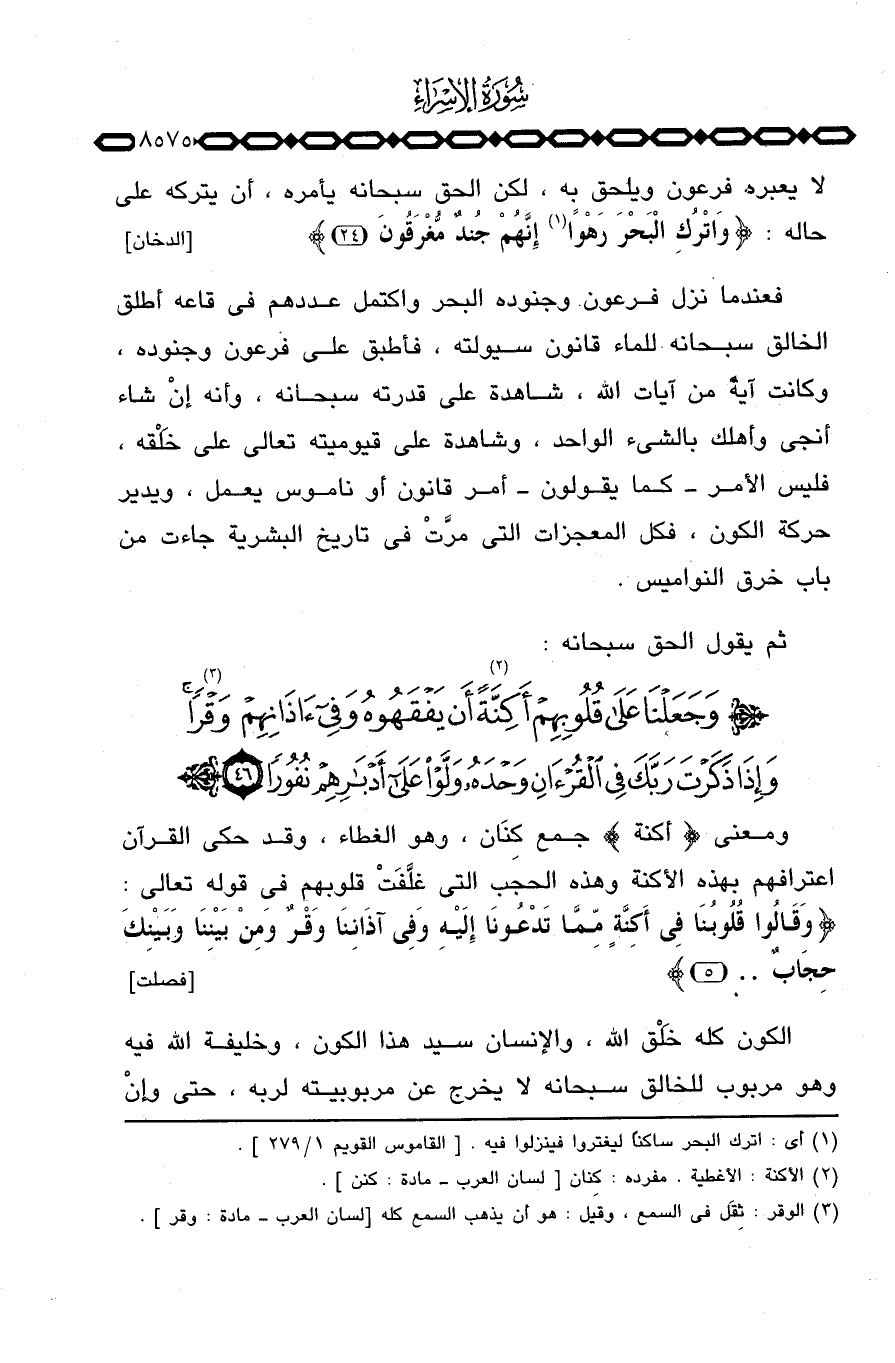 سُورَةُ الإِسْرَاءِ
٨٥٧٥
لا يعبره فرعون ويلحق به ، لكن الحق سبحانه يأمره ، أن يتركه على
حاله : ﴿ وَاتْرُكِ الْبَحْرَ رَهْوًا (١) إِنَّهُمْ جُندٌ مُّغْرَقُونَ (٢٤) ﴾ [الدخان]
فعندما نزل فرعون وجنوده البحر واكتمل عددهم فى قاعه أطلق
الخالق سبحانه للماء قانون سيولته ، فأطبق على فرعون وجنوده ،
وكانت آيةً من آيات الله ، شاهدة على قدرته سبحانه ، وأنه إنْ شاء
أنجى وأهلك بالشىء الواحد ، وشاهدة على قيوميته تعالى على خَلْقه ،
فليس الأمر - كما يقولون - أمر قانون أو ناموس يعمل ، ويدير
حركة الكون ، فكل المعجزات التى مرَّتْ فى تاريخ البشرية جاءت من
باب خرق النواميس .
ثم يقول الحق سبحانه :
﴿ وَجَعَلْنَا عَلَىٰ قُلُوبِهِمْ أَكِنَّةً (٢) أَن يَفْقَهُوهُ وَفِىٓ ءَاذَانِهِمْ وَقْرًا (٣) ۚ
وَإِذَا ذَكَرْتَ رَبَّكَ فِى ٱلْقُرْءَانِ وَحْدَهُۥ وَلَّوْا۟ عَلَىٰٓ أَدْبَـٰرِهِمْ نُفُورًا ٤٦ ﴾
ومعنى ﴿ أكنة ﴾ جمع كِنَان ، وهو الغطاء ، وقد حكى القرآن
اعترافهم بهذه الأكنة وهذه الحجب التى غلَّفَتْ قلوبهم فى قوله تعالى :
﴿ وَقَالُوا قُلُوبُنَا فِى أَكِنَّةٍ مِّمَّا تَدْعُونَا إِلَيْهِ وَفِى آذَانِنَا وَقْرٌ وَمِنْ بَيْنِنَا وَبَيْنِكَ
حِجَابٌ .. (٥) ﴾ [فصلت]
الكون كله خَلْق الله ، والإنسان سيد هذا الكون ، وخليفة الله فيه
وهو مربوب للخالق سبحانه لا يخرج عن مربوبيته لربه ، حتى وإنْ
(١) أى : اترك البحر ساكناً ليغتروا فينزلوا فيه . [ القاموس القويم ٢٧٩/١ ] .
(٢) الأكنة : الأغطية . مفرده : كِنان [ لسان العرب - مادة : كنن ] .
(٣) الوقر : ثِقَل فى السمع ، وقيل : هو أن يذهب السمع كله [لسان العرب - مادة : وقر ] .